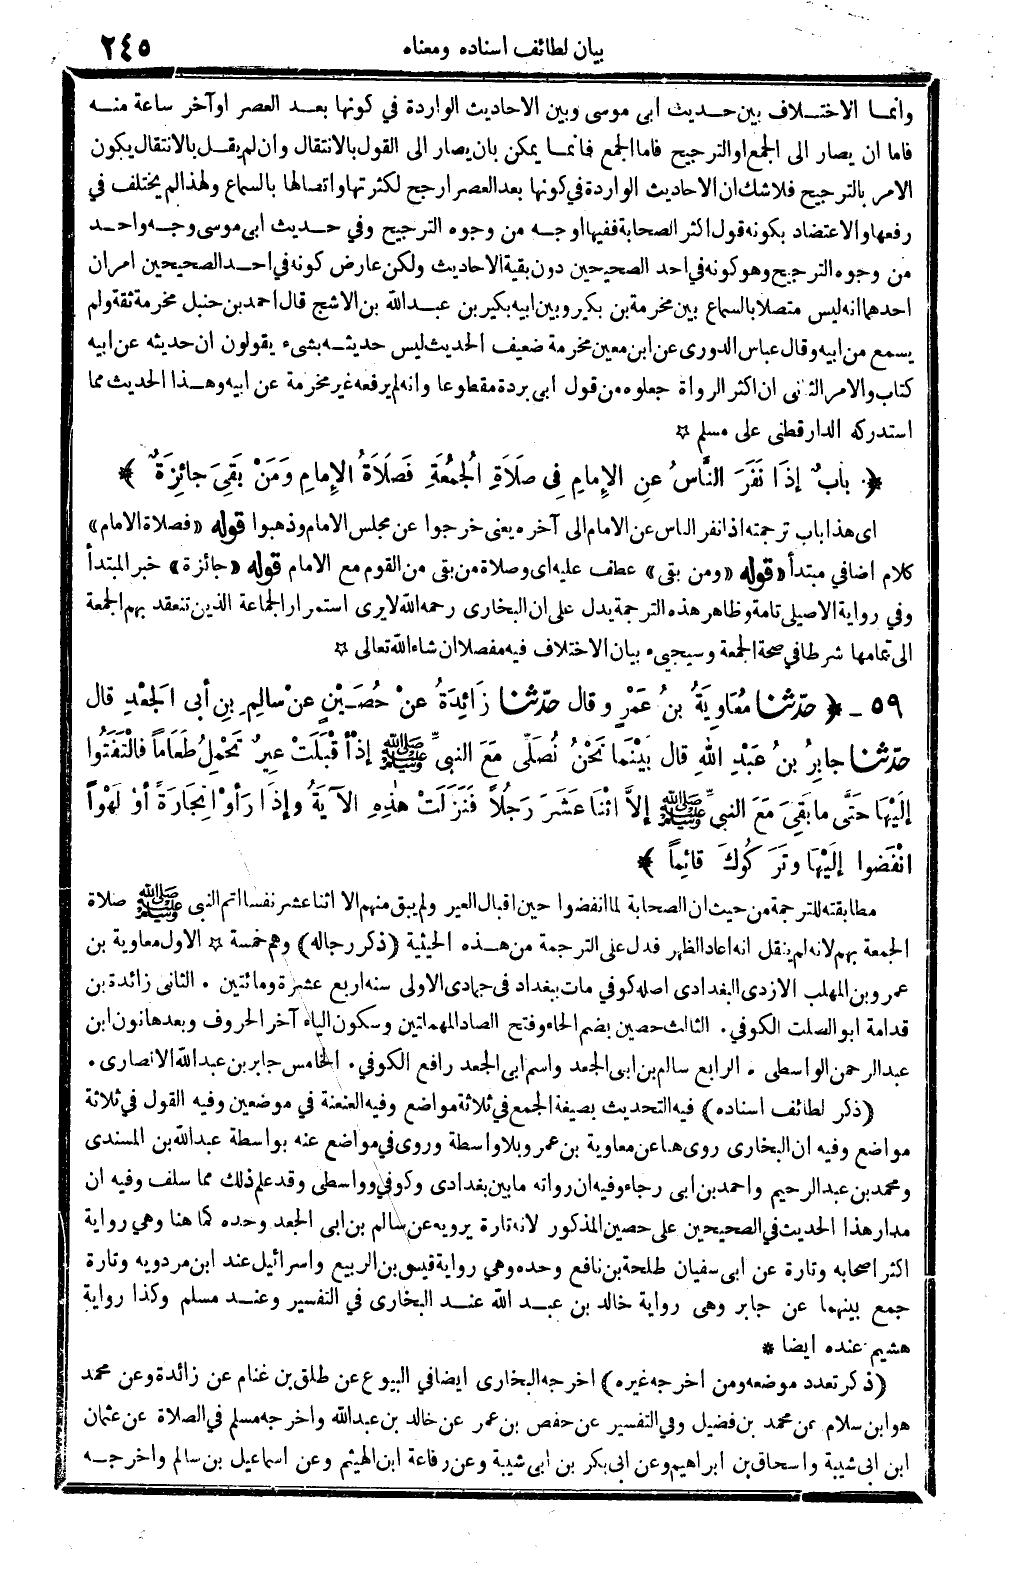 بيان لطائف اسناده ومعناه ٢٤٥
وانما الاختلاف بين حديث ابى موسى وبين الاحاديث الواردة في كونها بعد العصر او آخر ساعة منه
فاما ان يصار الى الجمع او الترجيح فاما الجمع فانما يمكن بان يصار الى القول بالانتقال وان لم يقل بالانتقال يكون
الامر بالترجيح فلا شك ان الاحاديث الواردة في كونها بعد العصر ارجح لكثرتها واتصالها بالسماع ولهذا لم يختلف في
رفعها والاعتضاد بكونه قول اكثر الصحابة ففيها اوجه من وجوه الترجيح وفي حديث ابى موسى وجه واحد
من وجوه الترجيح وهو كونه في احد الصحيحين دون بقية الاحاديث ولكن عارض كونه في احد الصحيحين امران
احدهما انه ليس متصلا بالسماع بين مخرمة بن بكير وبين ابيه بكير بن عبد الله بن الاشج قال احمد بن حنبل مخرمة ثقة ولم
يسمع من ابيه وقال عباس الدورى عن ابن معين مخرمة ضعيف الحديث ليس حديثه بشىء يقولون ان حديثه عن ابيه
كتاب والامر الثانى ان اكثر الرواة جعلوه من قول ابى بردة مقطوعا وانه لم يرفعه غير مخرمة عن ابيه وهذا الحديث مما
استدركه الدارقطنى على مسلم ☆
﴿ بابٌ إذَا نَفَرَ النَّاسُ عنِ الإِمامِ فى صَلاَةِ الجُمُعَةِ فَصَلاَةُ الإِمامِ وَمَنْ بَقِىَ جائِزَةٌ ﴾
اى هذا باب ترجمته اذا نفر الناس عن الامام الى آخره يعنى خرجوا عن مجلس الامام وذهبوا قوله «فصلاة الامام»
كلام اضافي مبتدأ «قوله «ومن بقى» عطف عليه اى وصلاة من بقى من القوم مع الامام قوله «جائزة» خبر المبتدأ
وفي رواية الاصيلى تامة وظاهر هذه الترجمة يدل على ان البخارى رحمه الله لا يرى استمرار الجماعة الذين تنعقد بهم الجمعة
الى تمامها شرطا في صحة الجمعة وسيجىء بيان الاختلاف فيه مفصلا ان شاء الله تعالى ☆
٥٩ ـ ﴿ حدّثنا مُعَاوِيَةُ بنُ عَمْرٍ و قال حدّثنا زَائِدَةُ عنْ حُصَيْنٍ عنْ سالِمِ بنِ أبى الجَعْدِ قال
حدّثنا جابِرُ بنُ عَبْدِ اللهِ قال بَيْنَما نَحْنُ نُصَلِّى مَعَ النبىِّ ﷺ إذْ أقْبَلَتْ عِيرٌ تَحْمِلُ طَعَاماً فالْتَفَتُوا
إلَيْها حَتَّى ما بَقِىَ مَعَ النبىِّ ﷺ إلاَّ اثْنَا عَشَرَ رَجُلاً فَنَزَلَتْ هٰذِهِ الآيَةُ وإذَا رَأوْا تِجَارَةً أوْ لَهْواً
انْفَضُّوا إلَيْها وتَرَكُوكَ قائِماً ﴾
مطابقته للترجمة من حيث ان الصحابة لما انفضوا حين اقبال العير ولم يبق منهم الا اثنا عشر نفسا اتم النبى ﷺ صلاة
الجمعة بهم لانه لم ينقل انه اعاد الظهر فدل على الترجمة من هذه الحيثية (ذكر رجاله) وهم خمسة ☆ الاول معاوية بن
عمرو بن المهلب الازدى البغدادى اصله كوفي مات ببغداد فى جمادى الاولى سنه اربع عشرة ومائتين . الثانى زائدة بن
قدامة ابو الصلت الكوفي. الثالث حصين بضم الحاء وفتح الصاد المهملتين وسكون الياء آخر الحروف وبعدها نون ابن
عبد الرحمن الواسطى . الرابع سالم بن ابى الجعد واسم ابى الجعد رافع الكوفي. الخامس جابر بن عبد الله الانصارى .
(ذكر لطائف اسناده) فيه التحديث بصيغة الجمع في ثلاثة مواضع وفيه العنعنة في موضعين وفيه القول في ثلاثة
مواضع وفيه ان البخارى روى هنا عن معاوية بن عمرو بلا واسطة وروى في مواضع عنه بواسطة عبد الله بن المسندى
ومحمد بن عبد الرحيم واحمد بن ابى رجاء وفيه ان رواته ما بين بغدادى وكوفي وواسطى وقد علم ذلك مما سلف وفيه ان
مدار هذا الحديث في الصحيحين على حصين المذكور لانه تارة يرويه عن سالم بن ابى الجعد وحده كما هنا وهي رواية
اكثر اصحابه وتارة عن ابى سفيان طلحة بن نافع وحده وهي رواية قيس بن الربيع واسرائيل عند ابن مردويه وتارة
جمع بينهما عن جابر وهى رواية خالد بن عبد الله عند البخارى في التفسير وعند مسلم وكذا رواية
هشيم عنده ايضا *
(ذكر تعدد موضعه ومن اخرجه غيره) اخرجه البخارى ايضا في البيوع عن طلق بن غنام عن زائدة وعن محمد
هو ابن سلام عن محمد بن فضيل وفي التفسير عن حفص بن عمر عن خالد بن عبد الله واخرجه مسلم في الصلاة عن عثمان
ابن ابى شيبة واسحاق بن ابراهيم وعن ابى بكر بن ابى شيبة وعن رفاعة ابن الهيثم وعن اسماعيل بن سالم واخرجه